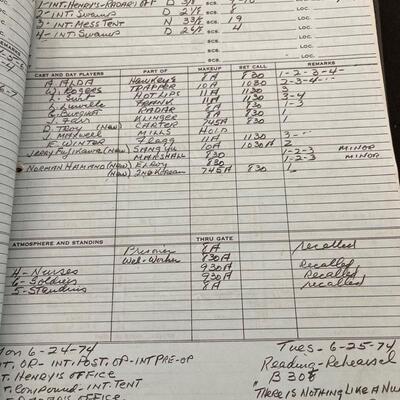 1-INT. HENRY'S-RADAR'S OFF D 3/8 SCS. LOC.
2-INT. SWAMP D 2 1/8 SCS. LOC.
3-INT. MESS TENT N 3 3/8 SCS. 19 LOC.
4-INT. SWAMP D 2 6/8 SCS. 4 LOC.
SCS. LOC.
CAST AND DAY PLAYERS PART OF MAKEUP SET CALL REMARKS
A. ALDA HAWKEYE 8A 830 1-2-3-4-
W. ROGERS TRAPPER 10A 1030 2-3-4-
L. SWIT HOT LIPS 11A 1130 3
L. LINVILLE FRANK 11A 1130 3-4
G. BURGHOFF RADAR 8A 830 1-3
J. FARR KLINGER 8A 830 1
D. TROY (NEW) CARTER 745A 830
J. MAXWELL MILLS HOLD
E. WINTER FLAGG 11A 1130 3-
JERRY FUJIKAWA (NEW) 10A 1030A 2-
(NEW) MARSHALL 830 1-2-3 MINOR
NORMAN HAMANO (NEW) 830 1-2-3 MINOR
(NEW) 2ND KOREAN 745A 830 1
ATMOSPHERE AND STANDINS THRU GATE
Prisoner 8A recalled
Wel-Worker 830A
4-Nurses 930A recalled
6-Soldiers 930A Recalled
5-Standins 8A recalled
Mon 6-24-74
INT. OR-INT. POST. OP-INT PRE-OP
INT. HENRY'S OFFICE
COMPOUND-INT. TENT
OFFICE
Tues-6-25-74
Reading-Rehearsal
B 308
"THERE IS NOTHING LIKE A NU